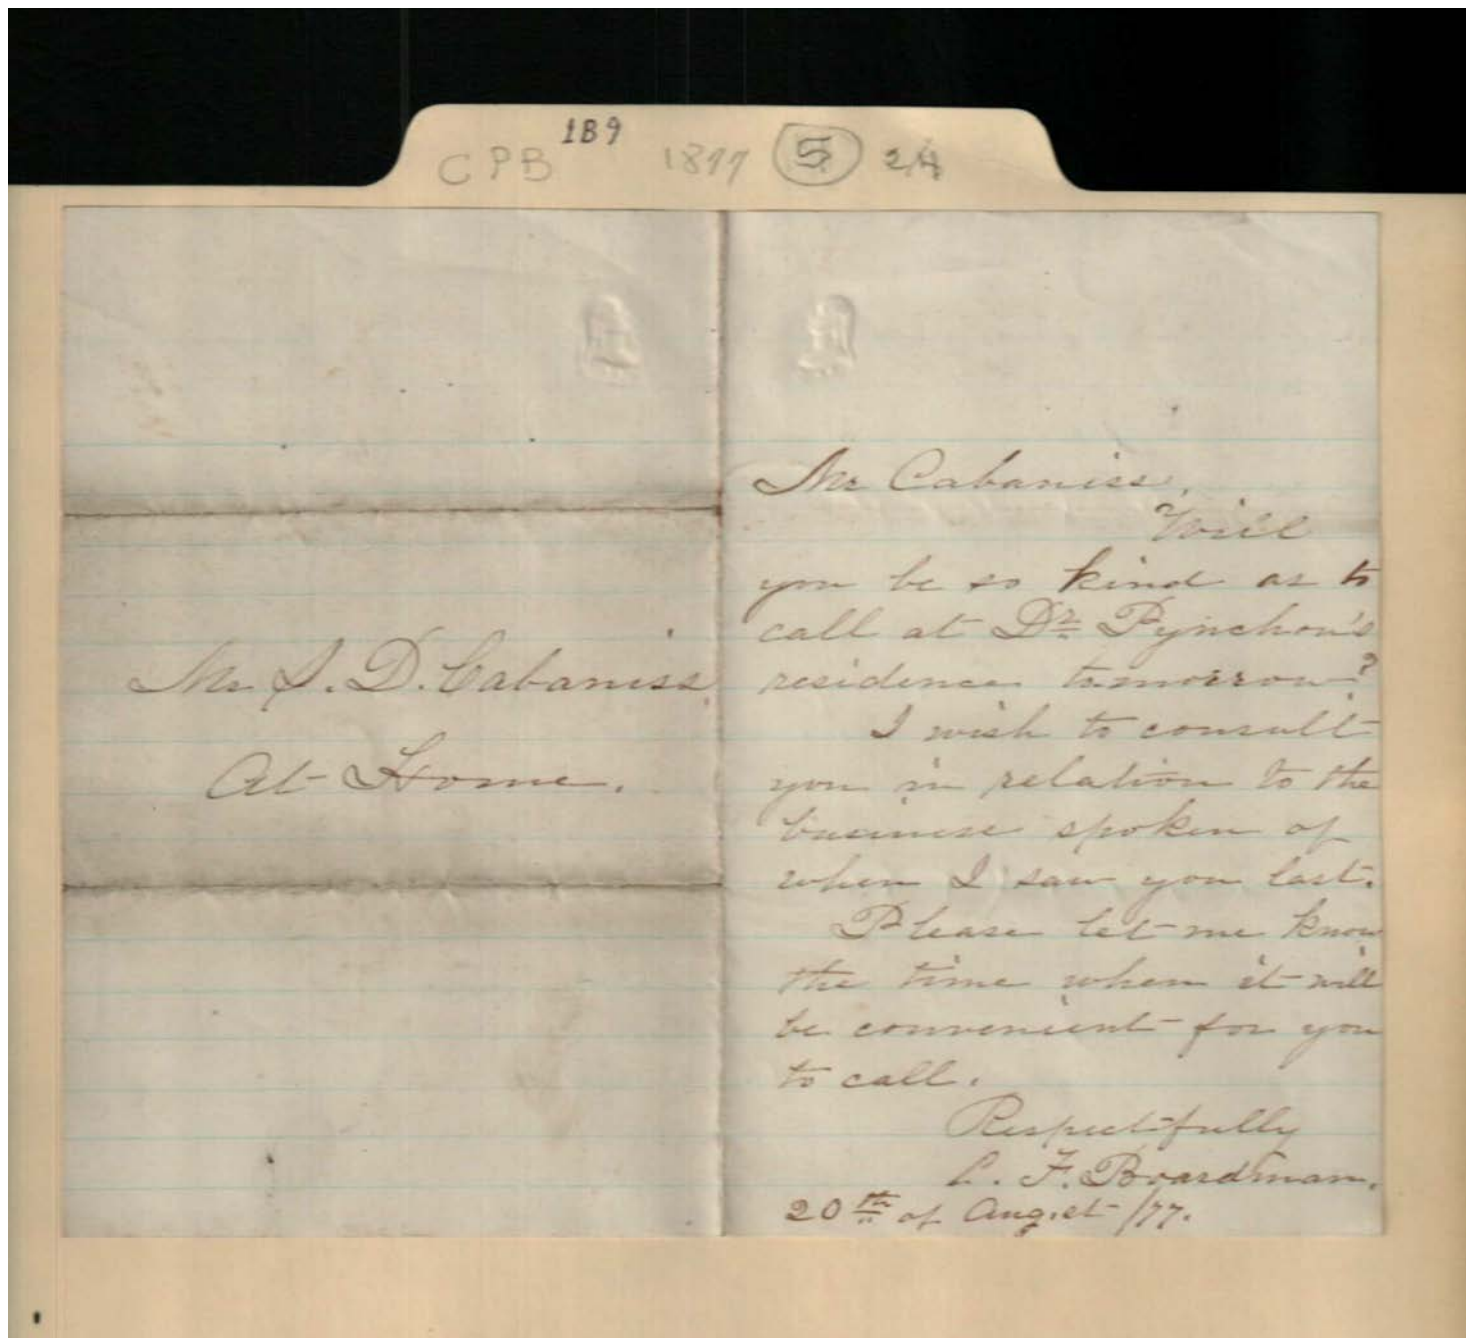 CPB 1B9 1877 5 24
Mr S. D. Cabaniss.
At Home.
Mr Cabaniss,
Will
you be so kind as to
call at Dr Pynchon's
residence tomorrow?
I wish to consult
you in relation to the
business spoken of
when I saw you last.
Please let me know
the time when it will
be convenient for you
to call.
Respectfully
C. F. Boardman.
20th of August /77.